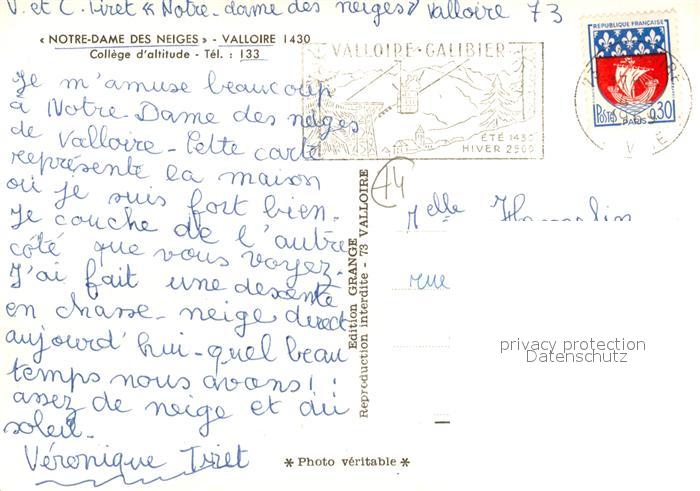 V. et C. Tiret « Notre-dame des neiges » Valloire 73
« NOTRE-DAME DES NEIGES » - VALLOIRE 1430
Collège d'altitude - Tél. : 133
Je m'amuse beaucoup
à Notre-Dame des neiges
de Valloire - Cette carte
représente la maison
où je suis fort bien.
Je couche de l'autre
côté que vous voyez.
J'ai fait une descente
en chasse-neige direct
aujourd'hui - quel beau
temps nous avons !!
assez de neige et du
soleil.
Véronique Tiret
VALLOIRE-GALIBIER
ÉTÉ 1430
HIVER 2500
REPUBLIQUE FRANÇAISE
POSTES 0,30
PARIS
Edition GRANGE
Reproduction interdite - 73 VALLOIRE
Melle
rue
privacy protection
Datenschutz
* Photo véritable *